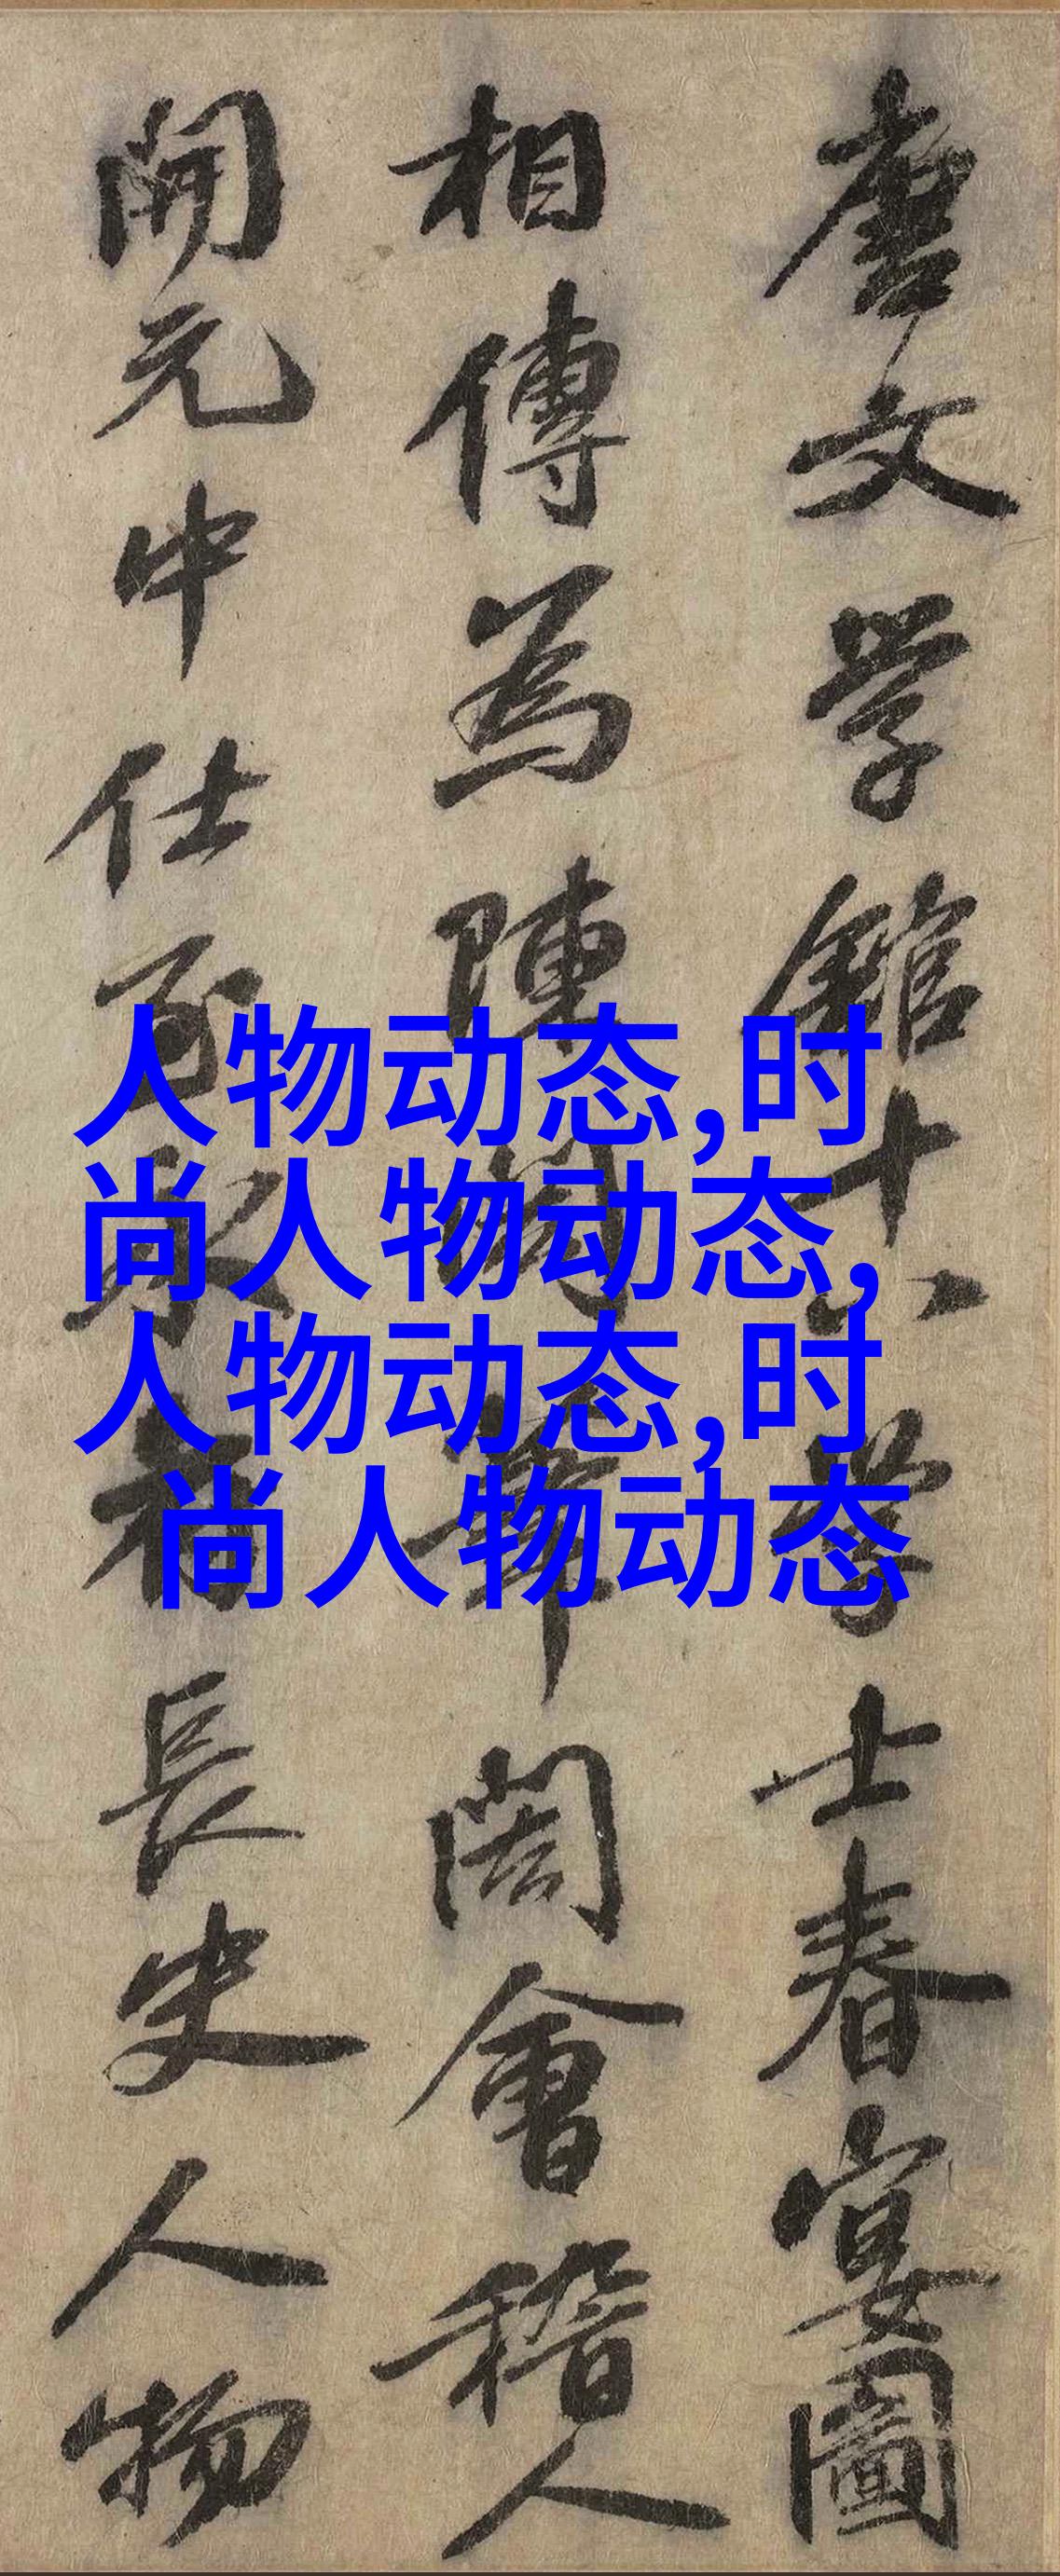 唐文学館十八学士春宴圖
相傳為陳閎筆閎會稽人
開元中仕至永長史人物
人物动态,时
尚人物动态,
人物动态,时
尚人物动态